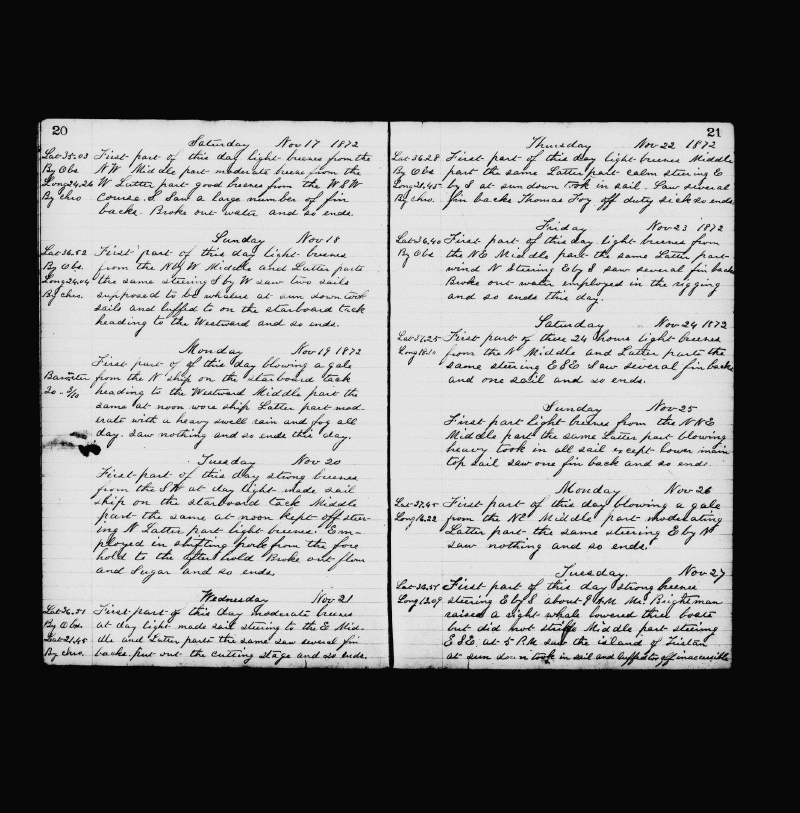 20
Saturday Nov 17 1872
Lat 35.03 First part of this day light breeses from the
By Obs NW Middle part moderate breese from the
Long 24.24 W Latter part good breeses from the WSW
By chro Course S Saw a large number of fin
backs. Broke out water and so ends.
Sunday Nov 18
Lat 36.52 First part of this day light breeses
By Obs from the N by W Middle and Latter parts
Long 24.04 the same steering S by W saw two sails
By chro. supposed to be whalers at sun down took
sails and luffed to on the starboard tack
heading to the Westward and so ends.
Monday Nov 19 1872
First part of of this day blowing a gale
from the N ship on the starboard tack
heading to the Westward Middle part the
same at noon wore ship Latter part mod-
erate with a heavy swell rain and fog all
day. saw nothing and so ends this day.
Tuesday Nov 20
First part of this day strong breeses
from the SW at day light made sail
ship on the starboard tack Middle
part the same at noon kept off steer-
ing N Latter part light breeses. Em-
ployed in shifting pork from the fore
hold to the after hold Broke out flour
and Sugar and so ends.
Wednesday Nov 21
Lat 36.51 First part of this day moderate breeses
By Obs. at day light made sail steering to the E Mid-
21.45 dle and Latter parts the same saw several fin
By chro. backs. put out the cutting stage and so ends.
21
Thursday Nov 22 1872
Lat 36.28 First part of this day light breeses Middle
By Obs part the same Latter part calm steering E
Long 21.45 by S at sun down took in sail. Saw several
By chro. fin backs Thomas Foy off duty sick so ends
Friday Nov 23 1872
Lat 36.40 First part of this day light breeses from
By Obs the NE Middle part the same Latter part
wind N Steering E by S saw several fin backs
Broke out water employed in the rigging
and so ends this day.
Saturday Nov 24 1872
Lat 37.25 First part of these 24 hours light breeses
Long from the N Middle and Latter parts the
same steering ESE Saw several fin backs
and one sail and so ends.
Sunday Nov 25
First part light breeses from the NNE
Middle part the same Latter part blowing
heavy took in all sail except lower main
top sail saw one fin back and so ends.
Monday Nov 26
Lat 37.45 First part of this day blowing a gale
Long from the NE Middle part moderating
Latter part the same steering E by N
saw nothing and so ends.
Tuesday. Nov 27
Lat First part of this day strong breeses
Long 13.09 steering E by S about 9 AM Mr. Brightman
raised a right whale lowered three boats
but did not strike Middle part steering
ESE at 5 P.M saw the island of Tristan
at sun down took in sail and luffed to off inaccessible